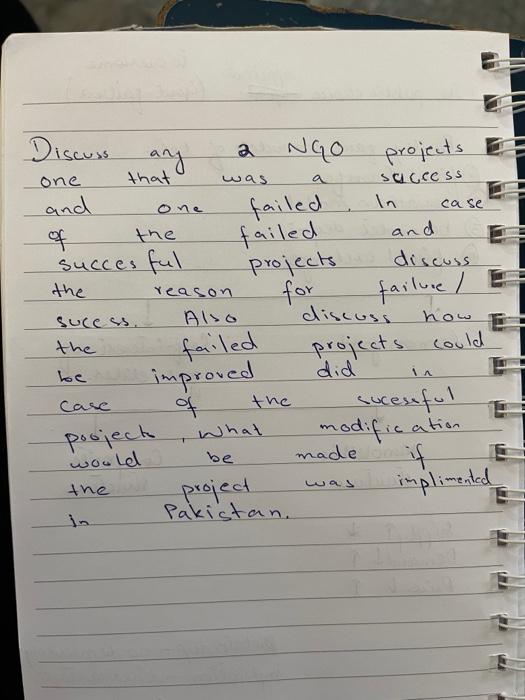 Discuss any 2 NGO projects
one that was a success
and one failed. In case
of the failed and
succesful projects discuss
the reason for failure/
success. Also discuss how
the failed projects could
be improved did in
case of the sucessful
poojects, what modification
would be made if
the project was implimented
in Pakistan.